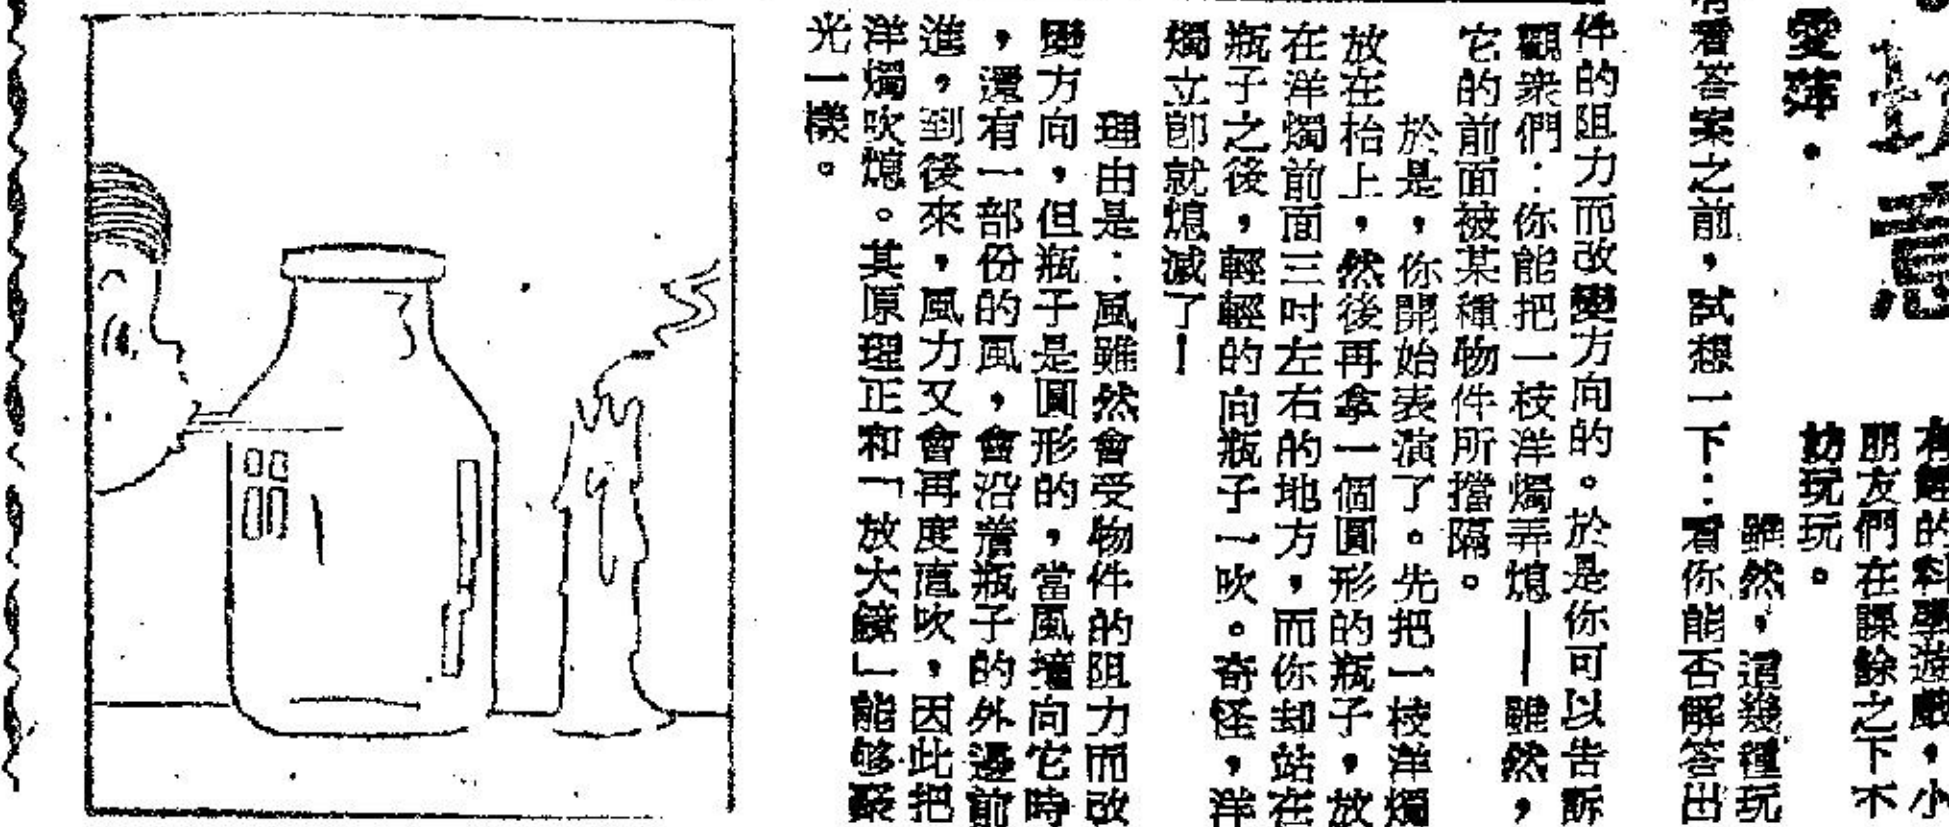 愛萍・
有趣的科學遊戲，小
朋友們在課餘之下不
妨玩玩。
雖然，這幾種玩
看答案之前，試想一下：看你能否解答出
件的阻力而改變方向的。於是你可以告訴
觀衆們：你能把一枝洋燭弄熄——雖然，
它的前面被某種物件所擋隔。
於是，你開始表演了。先把一枝洋燭
放在枱上，然後再拿一個圓形的瓶子，放
在洋燭前面三吋左右的地方，而你却站在
瓶子之後，輕輕的向瓶子一吹。奇怪，洋
燭立卽就熄滅了！
理由是：風雖然會受物件的阻力而改
變方向，但瓶子是圓形的，當風撞向它時
，還有一部份的風，會沿着瓶子的外邊前
進，到後來，風力又會再度直吹，因此把
洋燭吹熄。其原理正和「放大鏡」能够聚
光一樣。